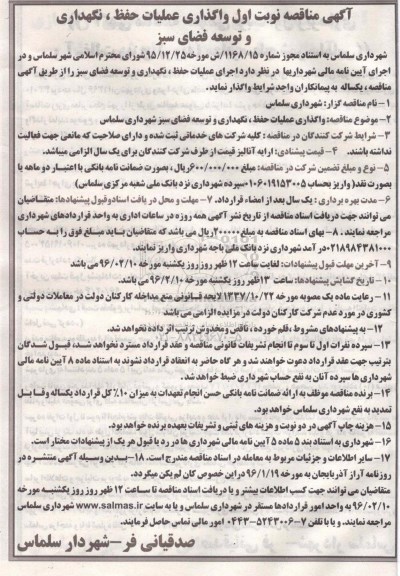 آگهی مناقصه نوبت اول واگذاری عملیات حفظ ، نگهداری
و توسعه فضای سبز
شهرداری سلماس به استناد مجوز شماره ۱۱۶۸/۱۵/ش مورخه ۹۵/۱۲/۲۵ شورای محترم اسلامی شهر سلماس و در
اجرای آیین نامه مالی شهرداریها در نظر دارد اجرای عملیات حفظ ، نگهداری و توسعه فضای سبز را از طریق آگهی
مناقصه، یکساله به پیمانکاران واجد شرایط واگذار نماید.
۱- نام مناقصه گزار: شهرداری سلماس
۲- موضوع مناقصه: واگذاری عملیات حفظ ، نگهداری و توسعه فضای سبز شهرداری سلماس
۳- شرایط شرکت کنندگان در مناقصه : کلیه شرکت های خدماتی ثبت شده و دارای صلاحیت که مانعی جهت فعالیت
نداشته باشند. ۴- قیمت پیشنهادی: ارایه آنالیز قیمت از طرف شرکت کنندگان برای یک سال الزامی میباشد.
۵- نوع و مبلغ تضمین شرکت در مناقصه: مبلغ ۶۰۰/۰۰۰/۰۰۰ ریال، بصورت ضمانت نامه بانکی با اعتبار دو ماهه یا
بصورت نقد( واریز بحساب ۰۱۰۶۰۱۹۱۵۳۰۰۵ سپرده شهرداری نزد بانک ملی شعبه مرکزی سلماس)
۶- مدت بهره برداری : یک سال بعد از امضاء قرارداد. ۷- مهلت و محل دریافت اسناد وقبول پیشنهادها: متقاضیان
می توانند جهت دریافت اسناد مناقصه از تاریخ نشر آگهی همه روزه در ساعات اداری به واحد قراردادهای شهرداری
مراجعه نمایند . ۸- بهای اسناد مناقصه به مبلغ ۲۰۰۰۰۰ ریال می باشد که متقاضیان باید مبلغ فوق را به حساب
۰۲۱۸۹۸۴۳۸۱۰۰۰ در آمد شهرداری نزد بانک ملی باجه شهرداری واریز نمایند.
۹- آخرین مهلت قبول پیشنهادات: لغایت ساعت ۱۲ ظهر روز یکشنبه مورخه ۹۶/۰۲/۱۰ می باشد
۱۰- تاریخ گشایش پیشنهادها: ساعت ۱۳ ظهر روز یکشنبه مورخه ۹۶/۲/۱۰ می باشد.
۱۱- رعایت ماده یک مصوبه مورخه ۱۳۳۷/۱۰/۲۲ لایحه قانونی منع مداخله کارکنان دولت در معاملات دولتی و
کشوری در مورد عدم شرکت کارکنان دولت در مزایده الزامی می باشد
۱۲- به پیشنهادهای مشروط ، قلم خورده ، ناقص و مخدوش ترتیب اثر داده نخواهد شد.
۱۳- سپرده نفرات اول تا سوم تا انجام تشریفات قانونی مناقصه و عقد قرارداد مسترد نخواهد شد، قبول شدگان
بترتیب جهت عقد قرارداد دعوت خواهند شد و هر گاه حاضر به انعقاد قرارداد نشوند به استناد ماده ۸ آیین نامه مالی
شهرداری ها سپرده آنان به نفع حساب شهرداری ضبط خواهد شد.
۱۴- برنده مناقصه موظف به ارائه ضمانت نامه بانکی حسن انجام تعهدات به میزان ۱۰٪ کل قرارداد یکساله و قابل
تمدید به نفع شهرداری سلماس خواهد بود.
۱۵- هزینه چاپ آگهی در دو نوبت و هزینه های ثبتی و تشریفات بعهده برنده خواهد بود.
۱۶- شهرداری به استناد بند ۵ ماده ۵ آیین نامه مالی شهرداری ها در رد یا قبول هر یک از پیشنهادات مختار است.
۱۷- سایر اطلاعات و جزئیات مربوط به معامله در اسناد مناقصه مندرج است. ۱۸- بدین وسیله آگهی منتشره در
روزنامه آراز آذربایجان به مورخه ۹۶/۱/۱۹ دراین خصوص کان لم یکن میگردد.
متقاضیان می توانند جهت کسب اطلاعات بیشتر و یا دریافت اسناد مناقصه تا ساعت ۱۲ ظهر روز روز یکشنبه مورخه
۹۶/۰۲/۱۰ به واحد امور قراردادها مستقر در شهرداری سلماس و یا به سایت www.salmas.ir شهرداری سلماس
مراجعه نمایند. و یا با تلفن ۷-۵۲۴۳۰۰۶-۰۴۴۳ امور مالی تماس حاصل فرمایند.
صدقیانی فر-شهردار سلماس